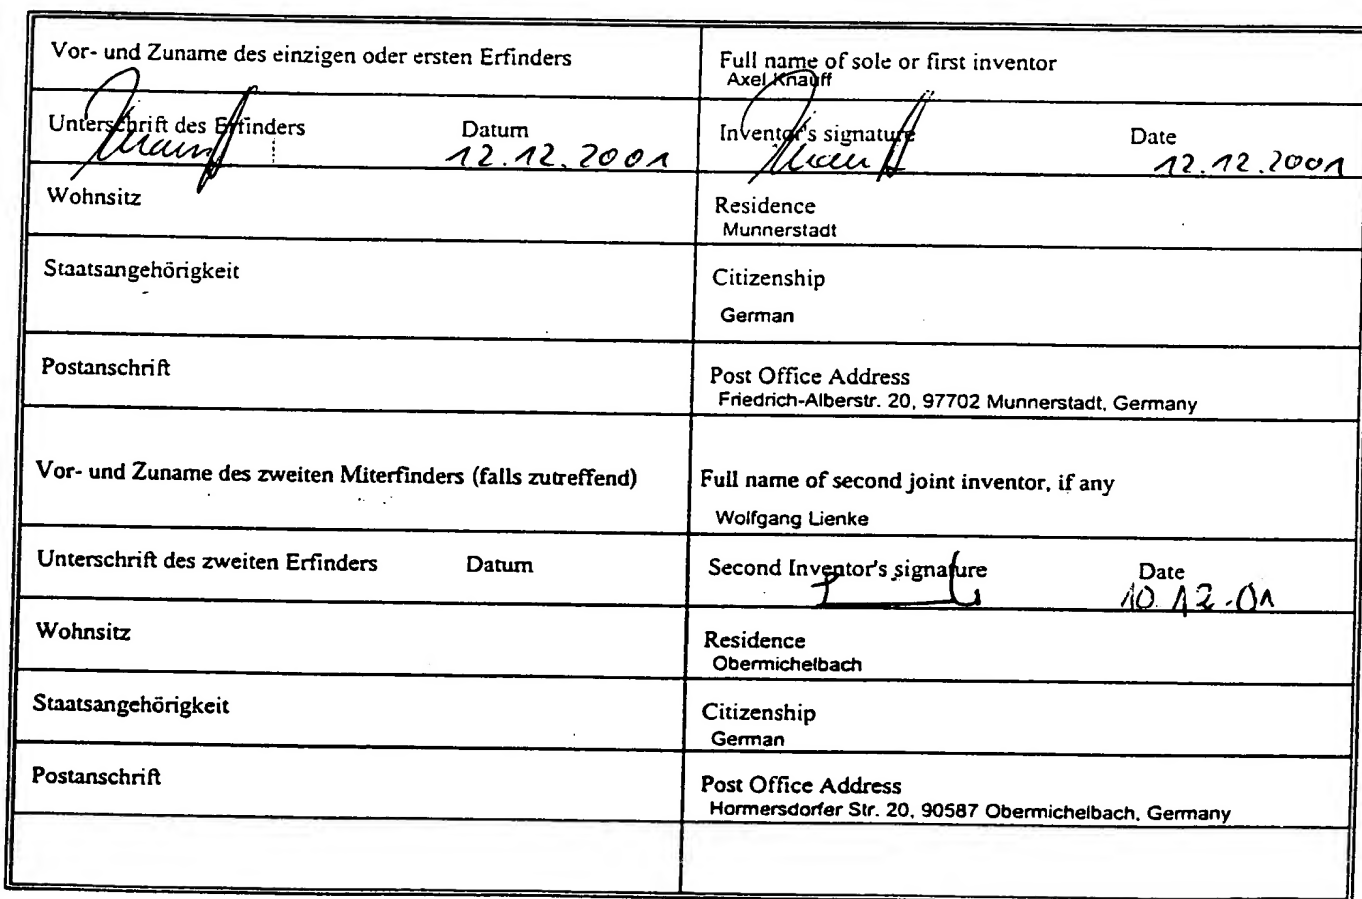 Vor- und Zuname des einzigen oder ersten Erfinders
Full name of sole or first inventor
Axel Knauff
Unterschrift des Erfinders Datum
12.12.2001
Inventor's signature Date
12.12.2001
Wohnsitz
Residence
Munnerstadt
Staatsangehörigkeit
Citizenship
German
Postanschrift
Post Office Address
Friedrich-Alberstr. 20, 97702 Munnerstadt, Germany
Vor- und Zuname des zweiten Miterfinders (falls zutreffend)
Full name of second joint inventor, if any
Wolfgang Lienke
Unterschrift des zweiten Erfinders Datum
Second Inventor's signature Date
10.12.01
Wohnsitz
Residence
Obermichelbach
Staatsangehörigkeit
Citizenship
German
Postanschrift
Post Office Address
Hormersdorfer Str. 20, 90587 Obermichelbach, Germany